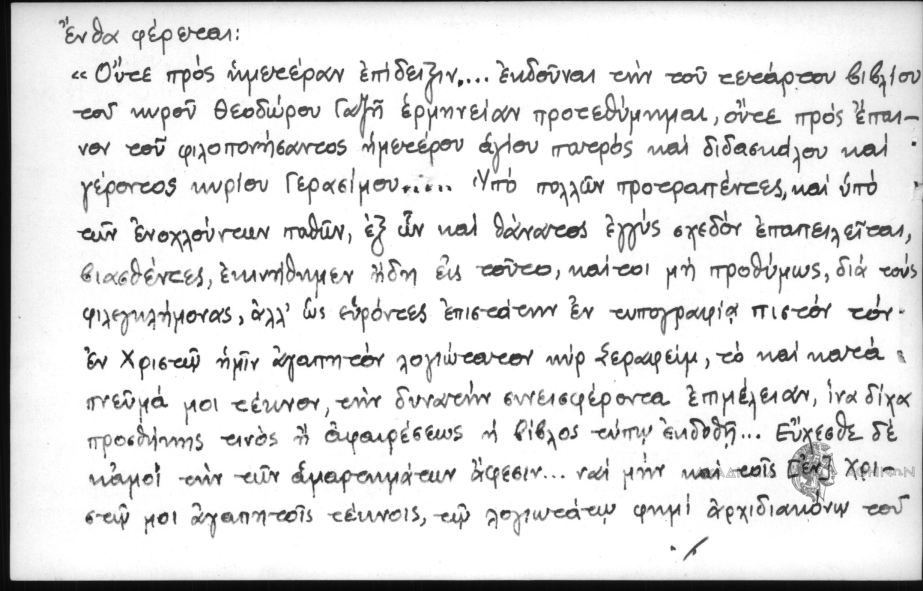 Ἔνθα φέρεται:
«Οὔτε πρός ἡμετέραν ἐπίδειξιν.... ἐκδοῦναι τήν τοῦ τετάρτου βιβλίου
τοῦ κυροῦ Θεοδώρου Γαζῆ ἑρμηνείαν προτεθύμημαι, οὔτε πρός ἔπαι-
νον τοῦ φιλοπονήσαντος ἡμετέρου ἁγίου πατρός καί διδασκάλου καί
γέροντος κυρίου Γερασίμου..... Ὑπό πολλῶν προτραπέντες, καί ὑπό
τῶν ἐνοχλούντων παθῶν, ἐξ ὧν καί θάνατος ἐγγύς σχεδόν ἐπαπειλεῖται,
βιασθέντες, ἐκινήθημεν ἤδη εἰς τοῦτο, καίτοι μή προθύμως, διά τούς
φιλεγκλήμονας, ἀλλ' ὡς εὑρόντες ἐπιστάτην ἐν τυπογραφίᾳ πιστόν τόν
ἐν Χριστῷ ἡμῖν ἀγαπητόν λογιώτατον κύρ Σεραφείμ, τό καί κατά
πνεῦμά μοι τέκνον, τήν δυνατήν συνεισφέροντα ἐπιμέλειαν, ἵνα δίχα
προσθήκης τινός ἤ ἀφαιρέσεως ἡ βίβλος τύπῳ ἐκδοθῇ... Εὔχεσθε δέ
κἀμοί τήν τῶν ἁμαρτημάτων ἄφεσιν... ναί μήν καί τοῖς ἐν Χρι-
στῷ μοι ἀγαπητοῖς τέκνοις, τῷ λογιωτάτῳ φημί ἀρχιδιακόνῳ τοῦ
./